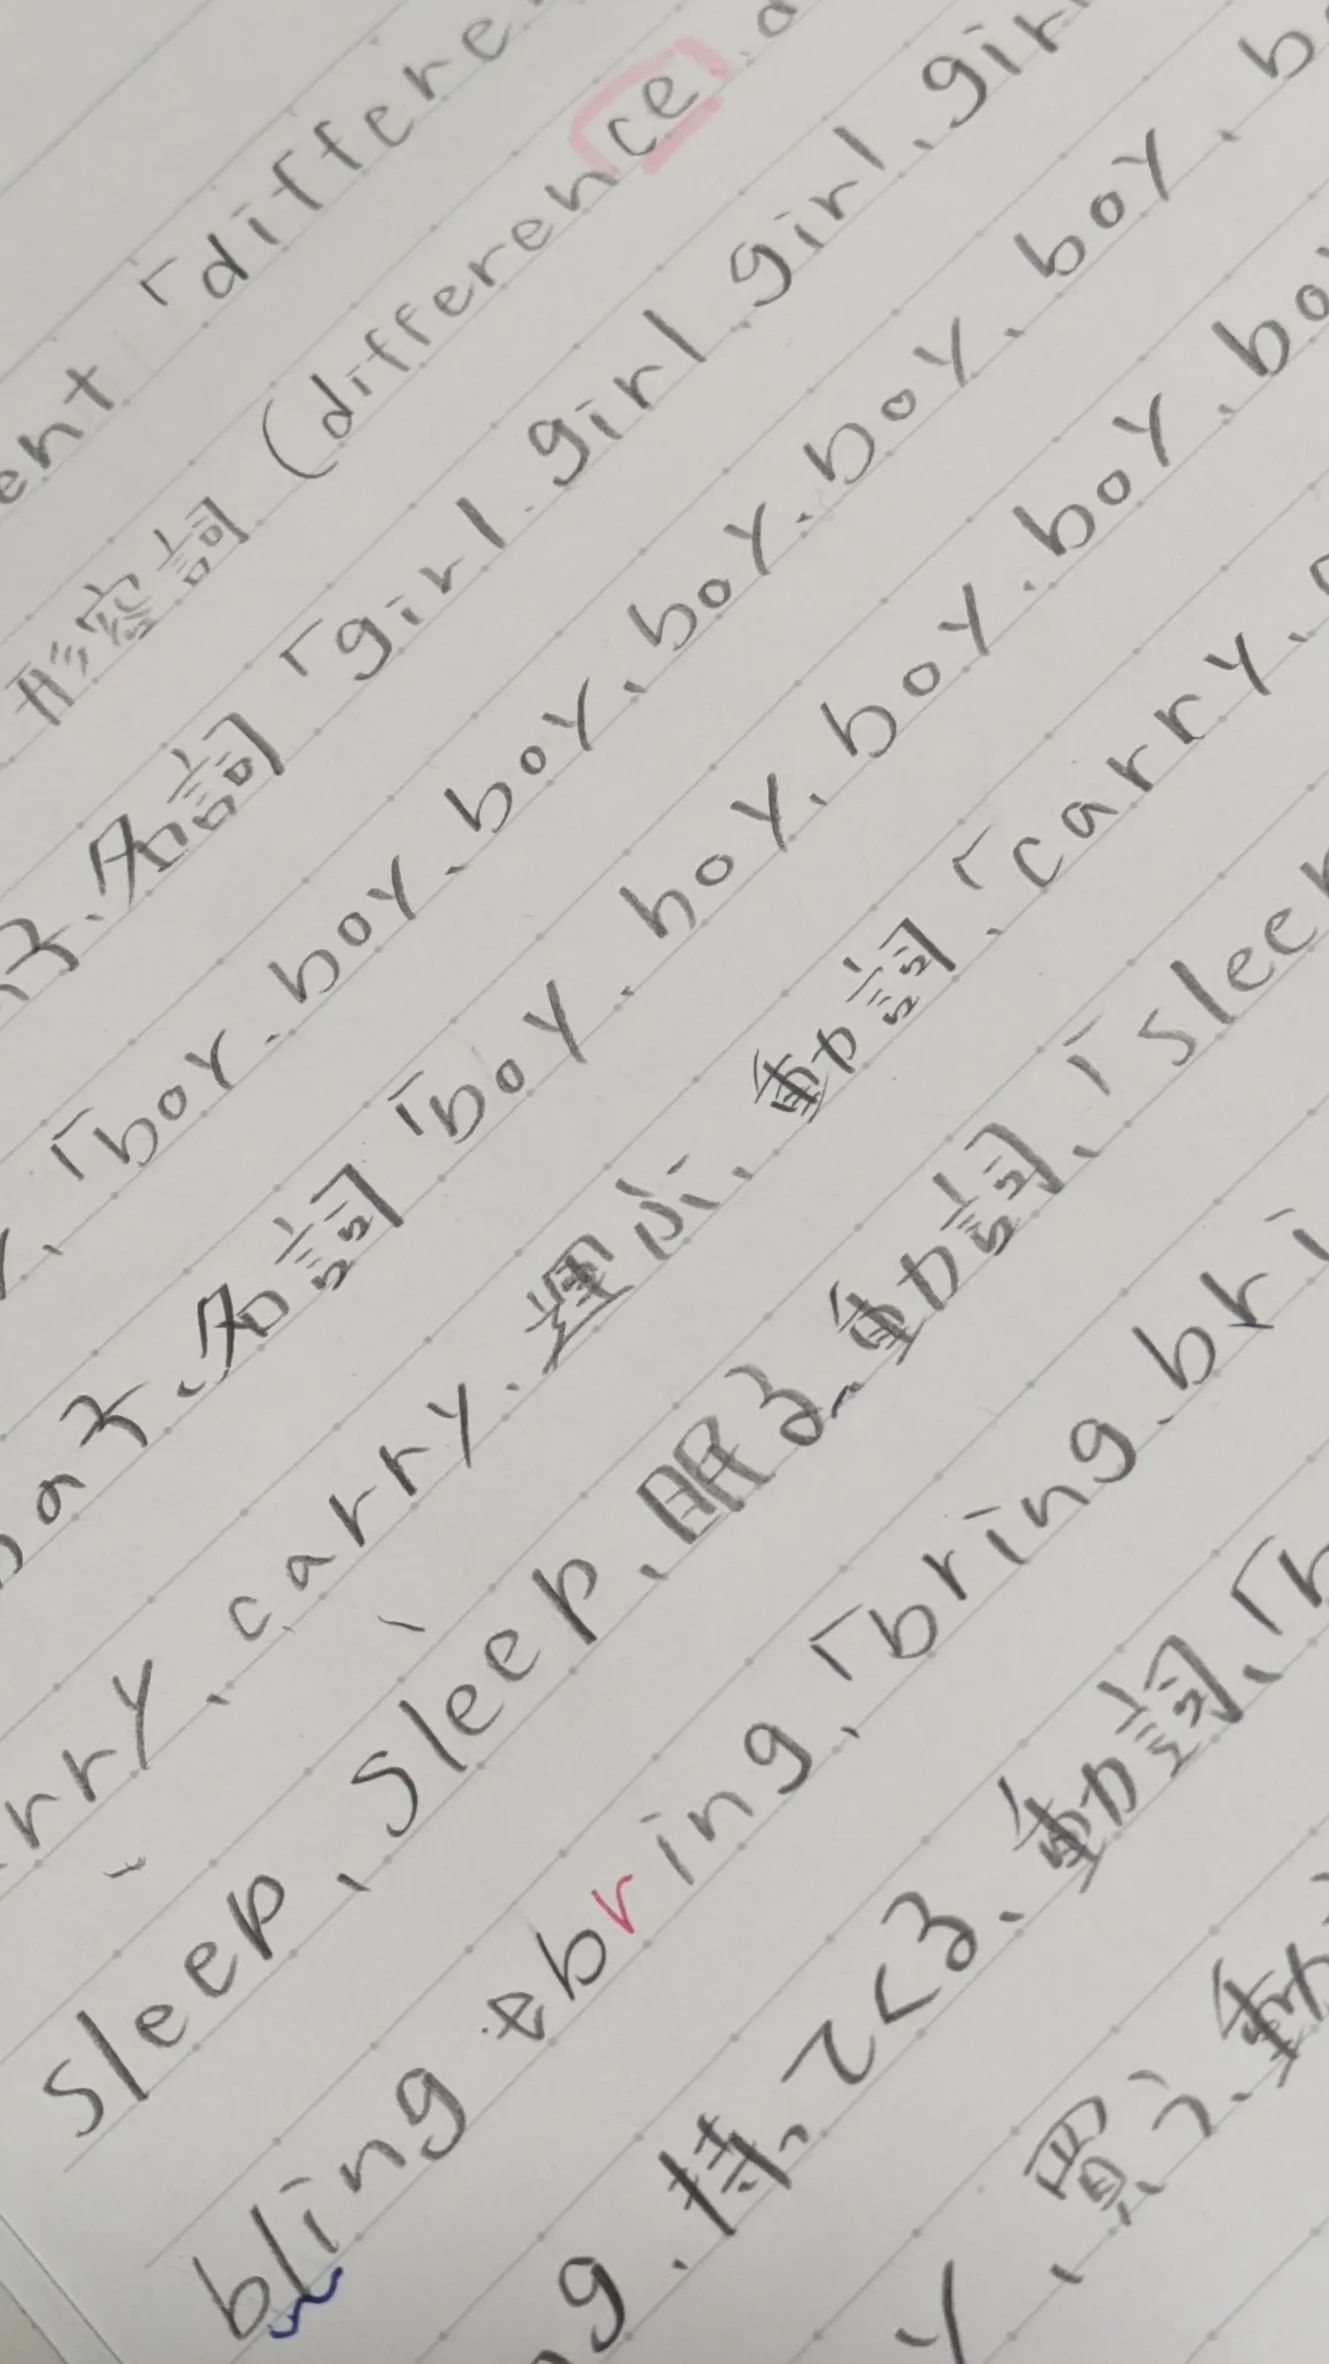 ent「differe
形容詞(difference.
子、名詞「girl.girl.girl、gir
「boy.boy、boy、boy.boy、b
子、名詞「boy.boy、boy.boy、bo
rry、carry.運ぶ、動詞、「carry、
sleep、sleep、眠る、動詞、「slee
bling→bring、「bring、bri
g、持ってくる、動詞、「b
y、買う、動